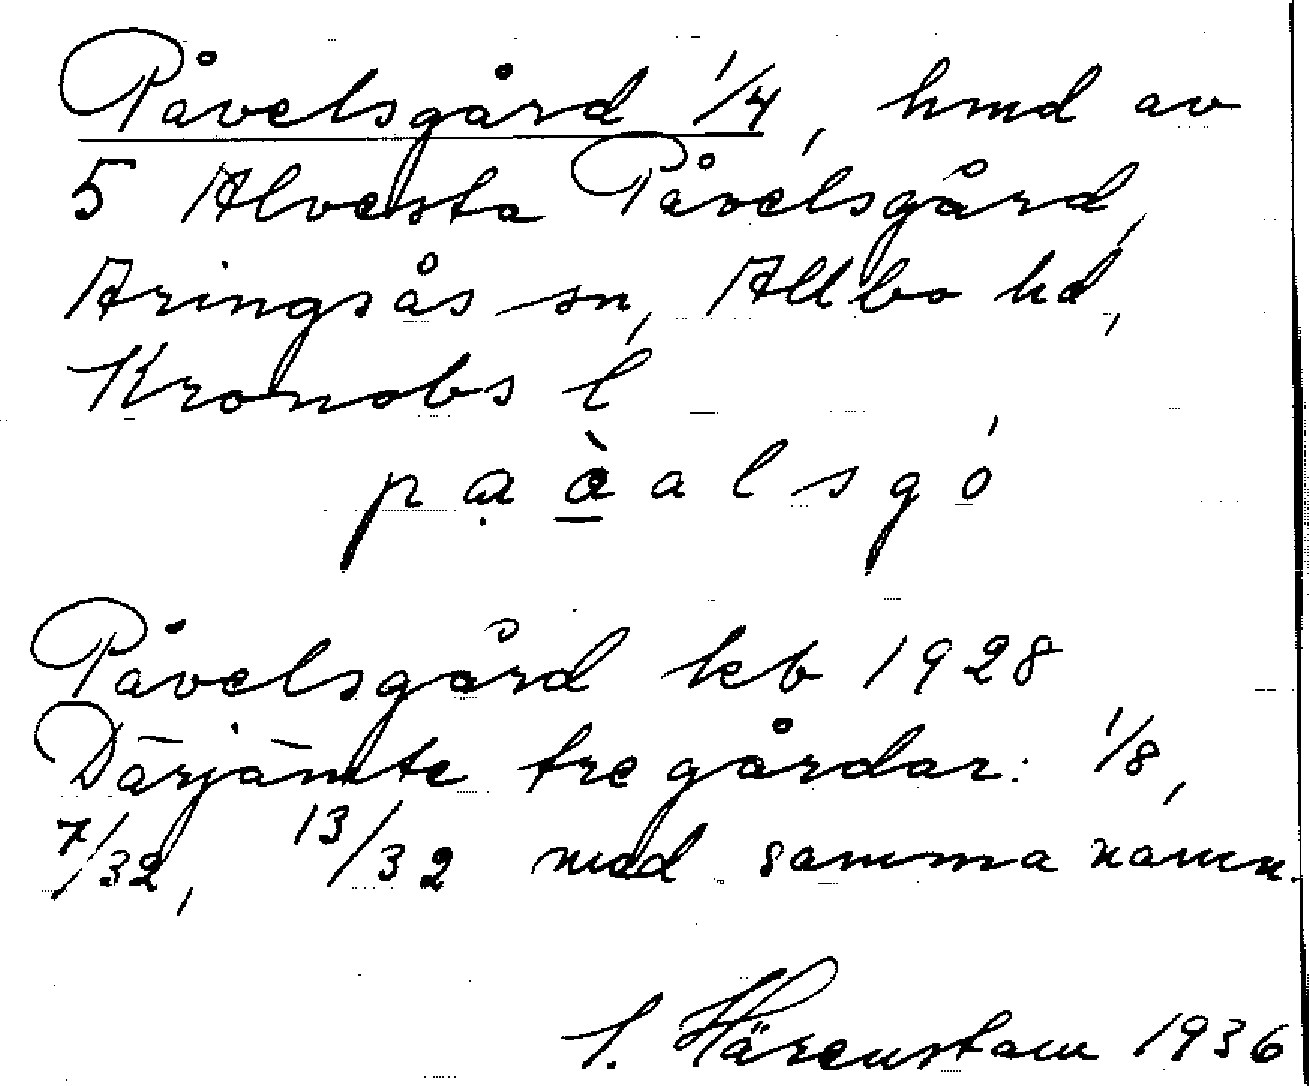 Påvelsgård 1/4, hmd av
5 Alvesta Påvelsgård,
Aringsås sn, Allbo hd,
Kronobs l
pạà̱alsgó
Påvelsgård kb 1928
Därjämte tre gårdar: 1/8,
7/32, 13/32 med samma namn.
Härenstam 1936